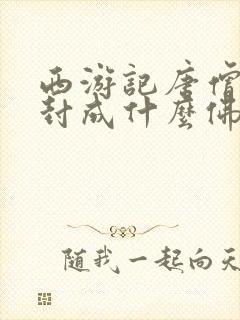 西游記唐僧
封成什麼佛
隨我一起向天